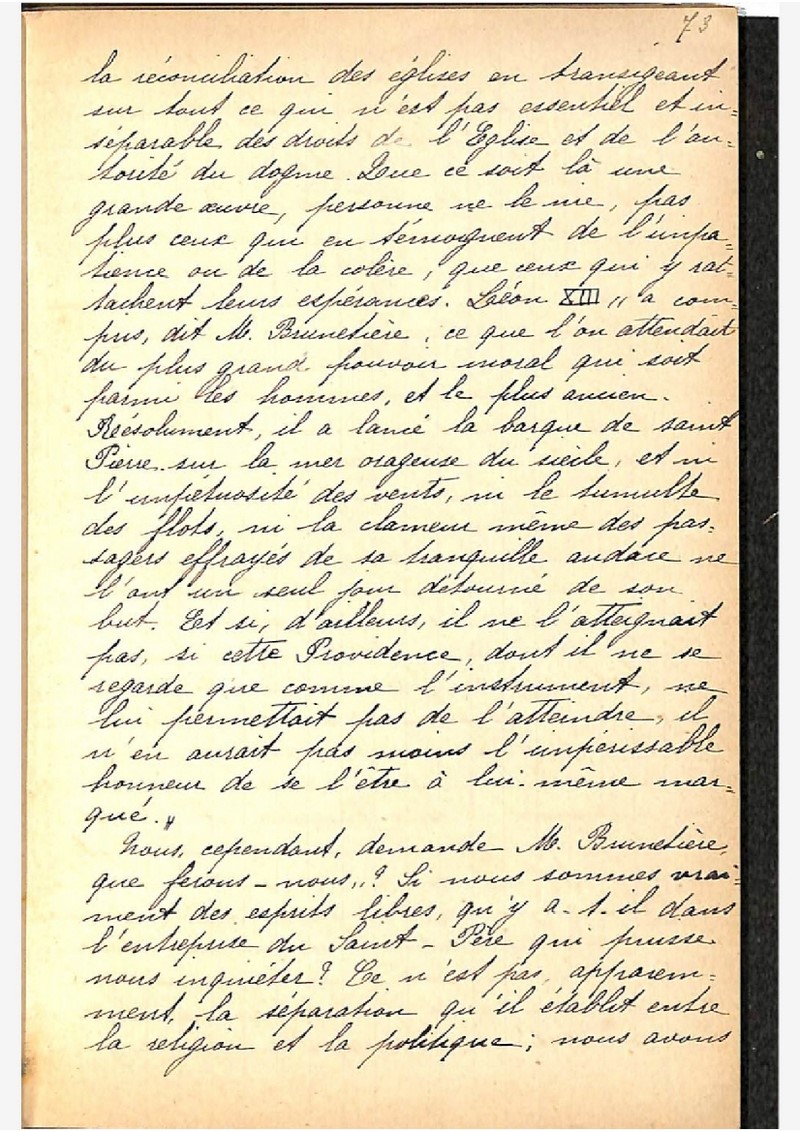 73
la réconciliation des églises en transigeant
sur tout ce qui n'est pas essentiel et in=
séparable des droits de l'Eglise et de l'au=
torité du dogme. Que ce soit là une
grande œuvre, personne ne le nie, pas
plus ceux qui en témoignent de l'impa=
tience ou de la colère, que ceux qui y rat=
tachent leurs espérances. Léon XIII „ a com=
pris, dit M. Brunetière, ce que l'on attendait
du plus grand pouvoir moral qui soit
parmi les hommes, et le plus ancien.
Résolument, il a lancé la barque de saint
Pierre sur la mer orageuse du siècle, et ni
l'impétuosité des vents, ni le tumulte
des flots, ni la clameur même des pas=
sagers effrayés de sa tranquille audace ne
l'ont un seul jour détourné de son
but. Et si, d'ailleurs, il ne l'atteignait
pas, si cette Providence, dont il ne se
regarde que comme l'instrument, ne
lui permettait pas de l'atteindre, il
n'en aurait pas moins l'impérissable
honneur de se l'être à lui-même mar=
qué.„
Nous, cependant, demande M. Brunetière,
que ferons-nous„? Si nous sommes vrai=
ment des esprits libres, qu'y a-t-il dans
l'entreprise du Saint-Père qui puisse
nous inquiéter? Ce n'est pas, apparem=
ment, la séparation qu'il établit entre
la religion et la politique; nous avons